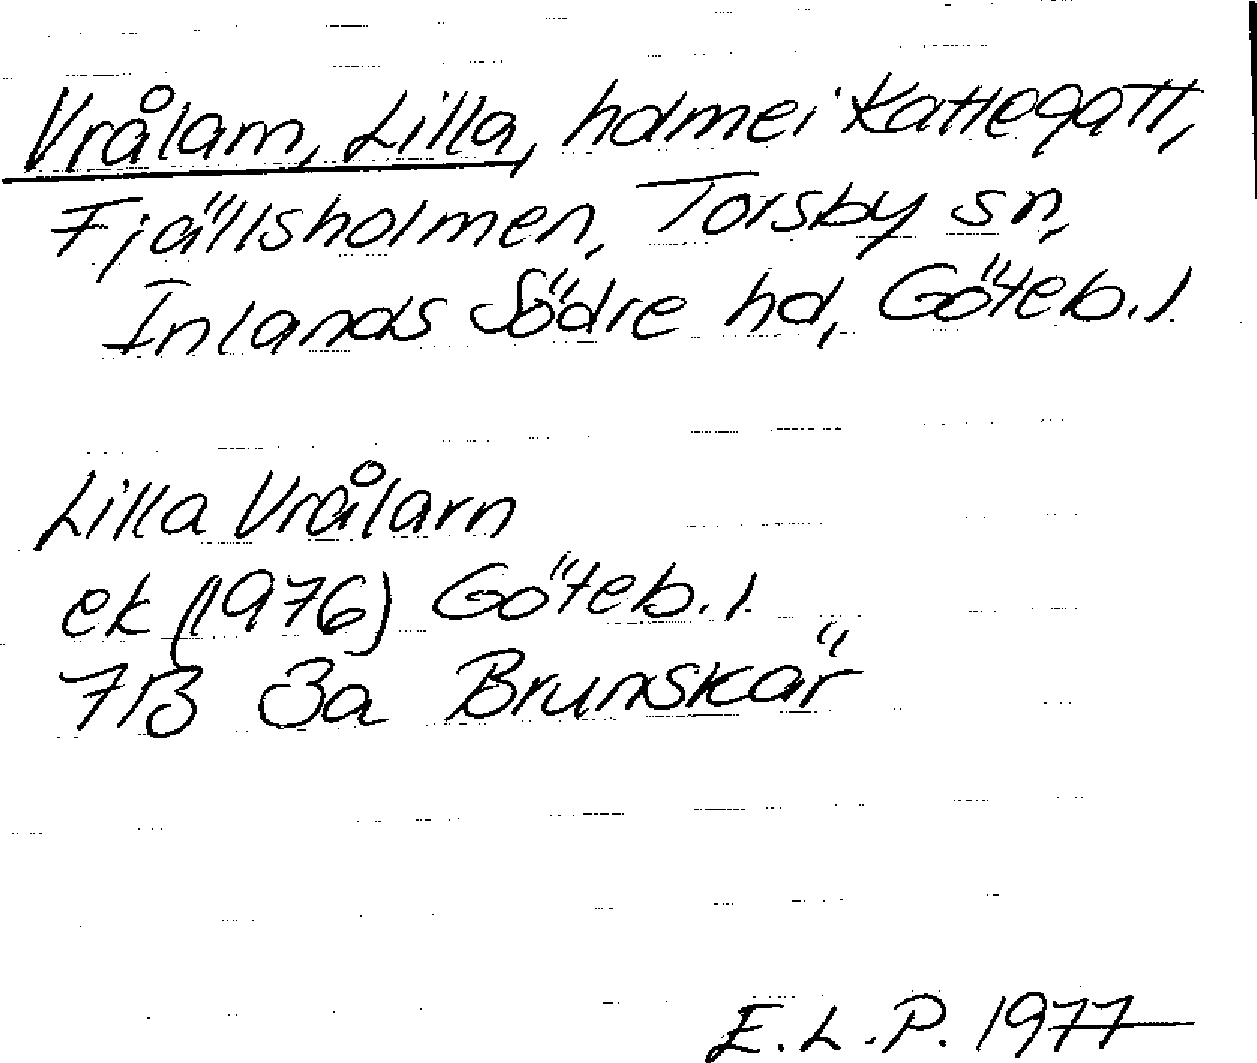 Vrålarn, Lilla, holme i Kattegatt,
Fjällsholmen, Torsby sn,
Inlands Södre hd, Göteb. l.
Lilla Vrålarn
ek (1976) Göteb. l.
7B 3a Brunskär
E. L. P. 1977